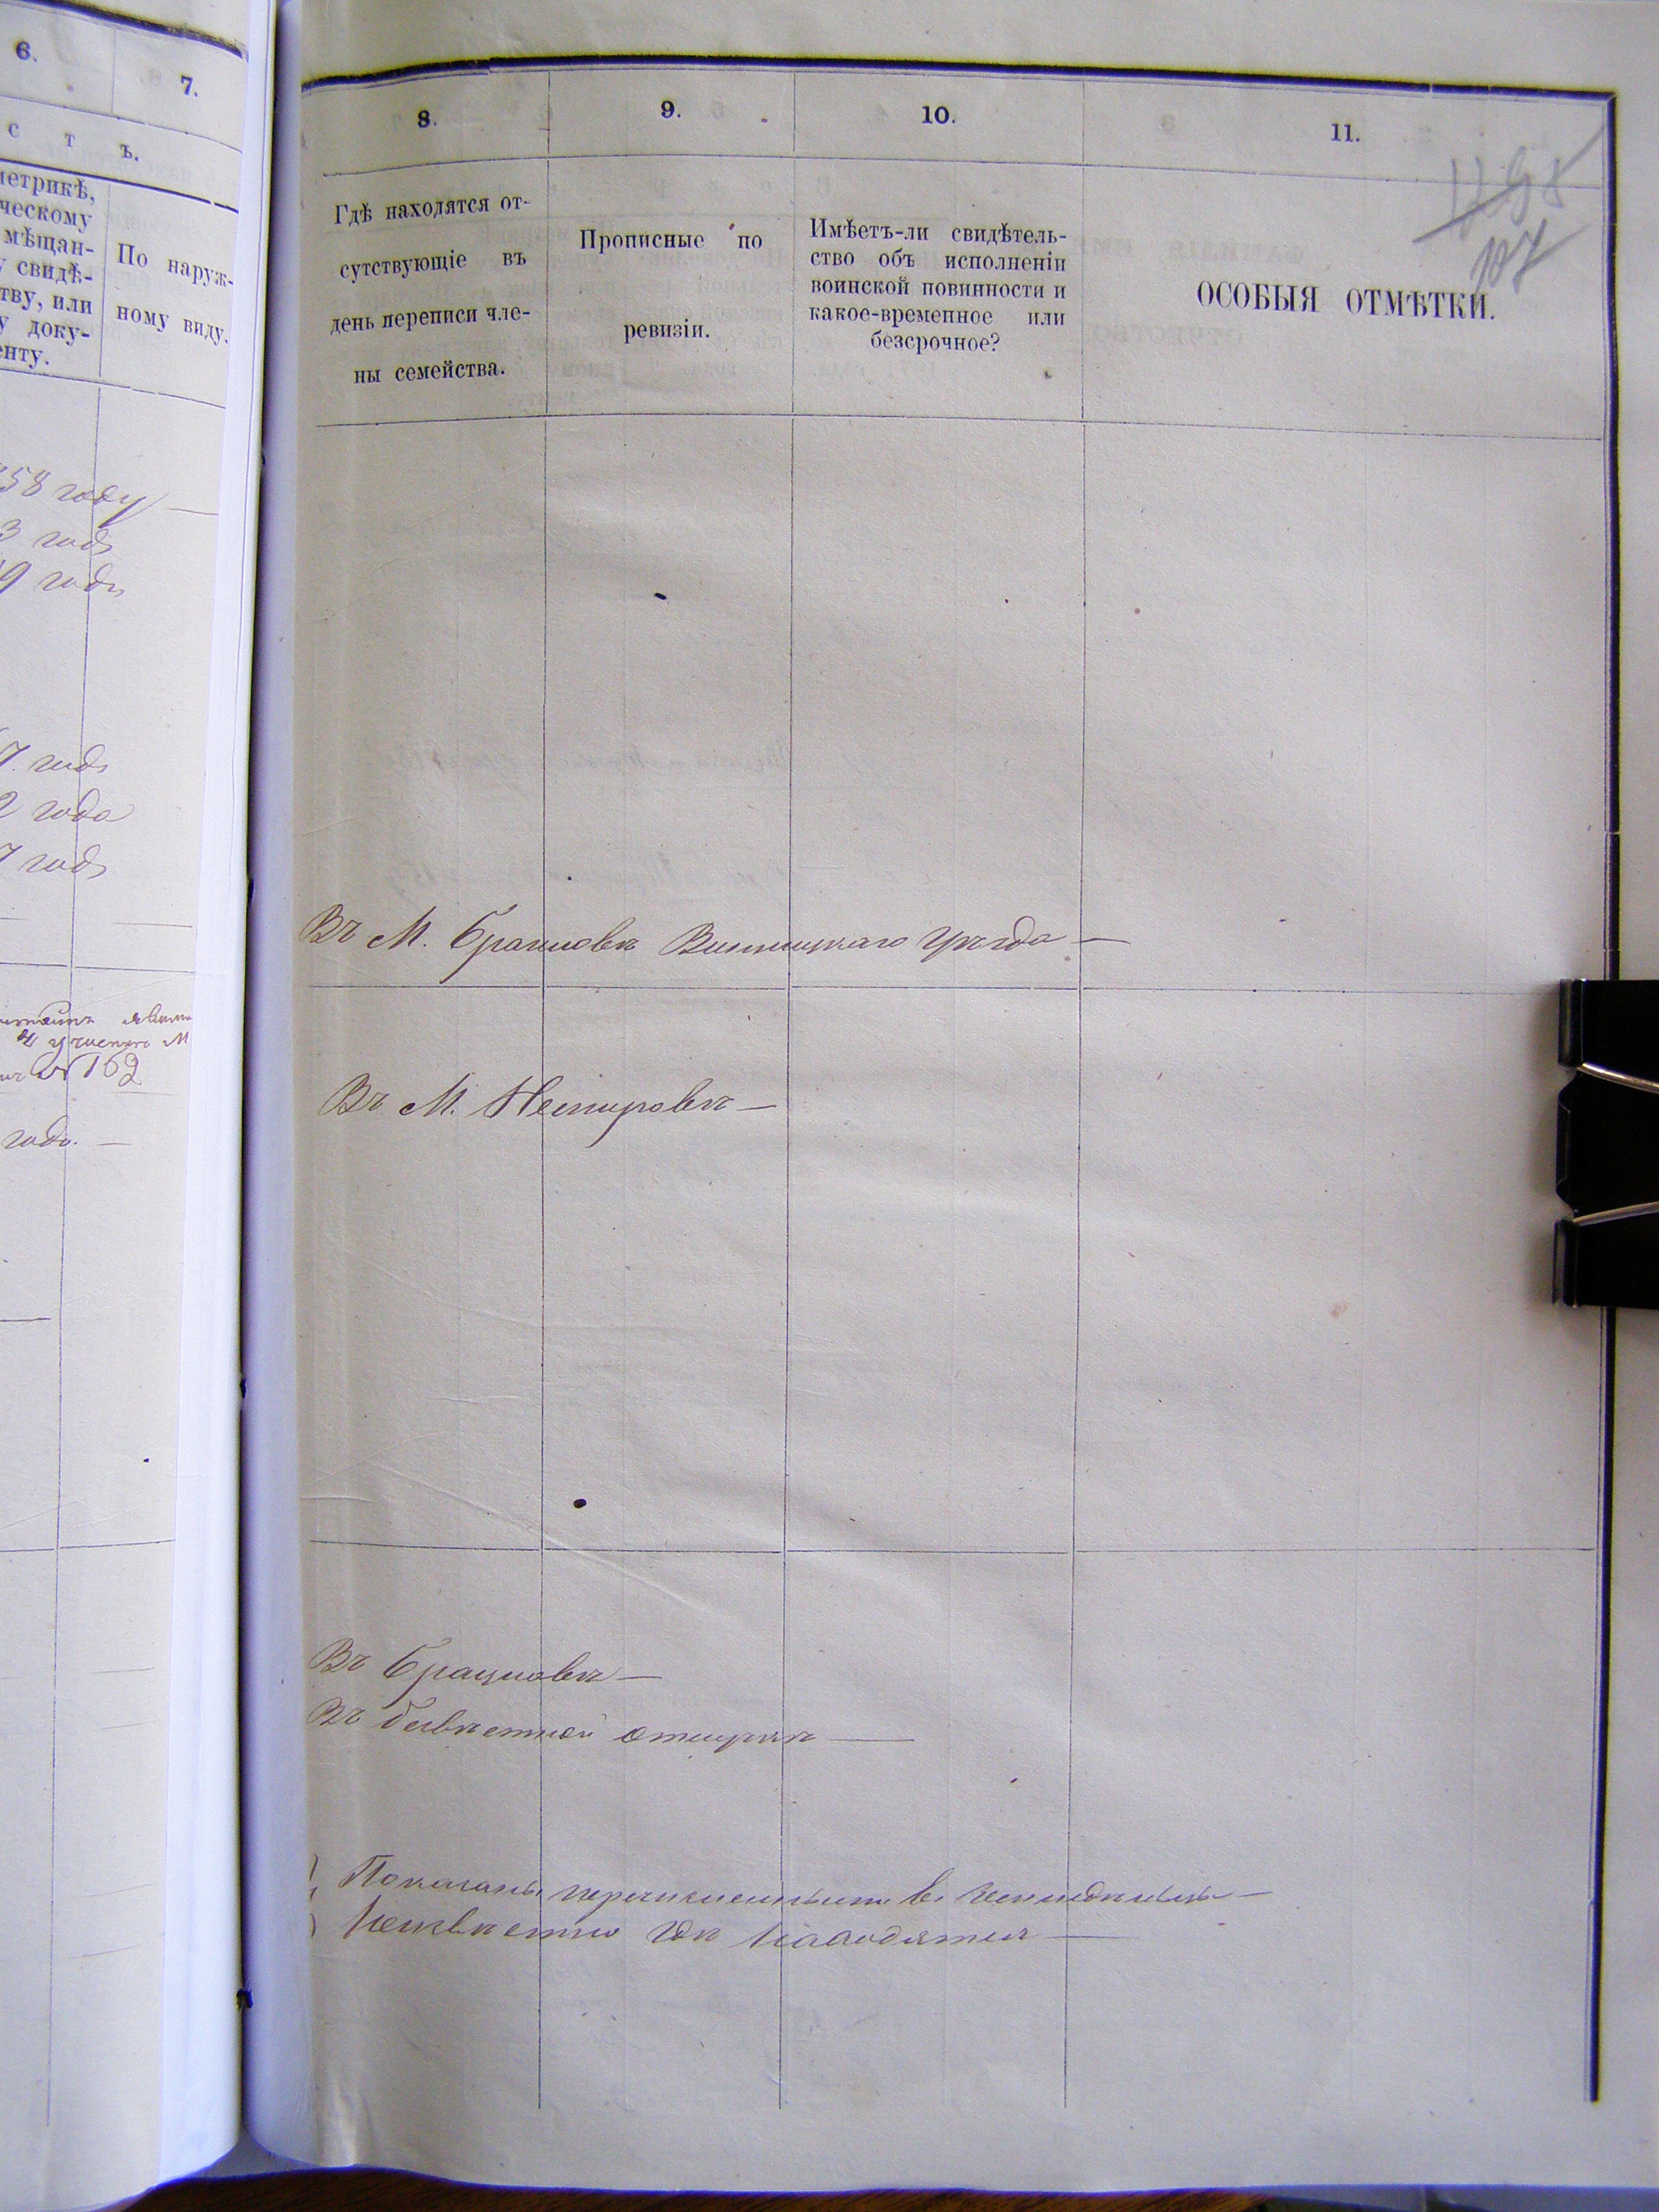 6.
7.
с т ъ.
метрикѣ,
ческому
мѣщан-
у свидѣ-
тву, или
у доку-
енту.
По наруж-
ному виду.
58 году
3 годъ
9 годъ
7 годъ
2 года
7 годъ
162
года
8.
9.
10.
11.
107
Гдѣ находятся от-
сутствующіе въ
день переписи чле-
ны семейства.
Прописные по
ревизіи.
Имѣетъ-ли свидѣтель-
ство объ исполненіи
воинской повинности и
какое-временное или
безсрочное?
ОСОБЫЯ ОТМѢТКИ.
Въ М. Браиловѣ Винницкаго уѣзда —
Въ М. Немировѣ —
Въ Брацлавѣ —
Въ отлучкѣ —
Показаны перечисленными въ
Неизвѣстно гдѣ находятся —